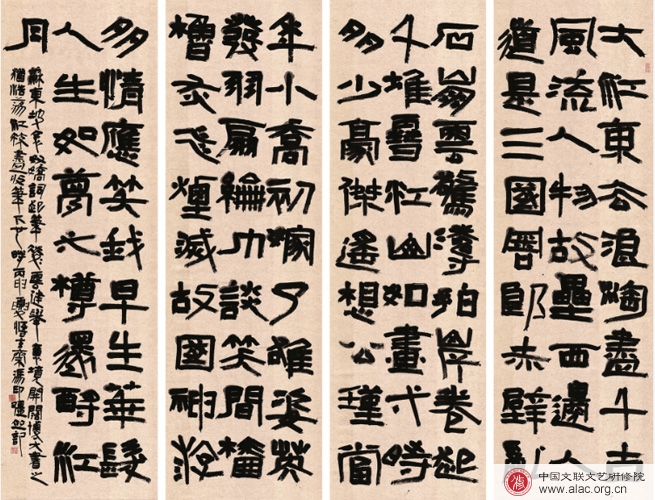 大江東去浪淘盡千古
風流人物故壘西邊人
道是三國周郎赤壁亂
石崩雲驚濤拍岸卷起
千堆雪江山如畫弌時
多少豪傑遙想公瑾當
年小喬初嫁了雄姿英
發羽扇綸巾談笑間檣
櫓灰飛煙滅故國神游
多情應笑我早生華髮
人生如夢弌樽還酹江
月
蘇東坡念奴嬌詞起筆健舉開闊博大書之
浩蕩江
中国文联文艺研修院
www.alac.org.cn